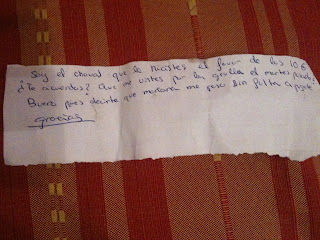 Soy el chaval que le hicistes el favor de los 10 €
¿Te acuerdas? Que me vistes por las el martes pasado
Bueno pues decirte que mañana me paso sin falta
gracias